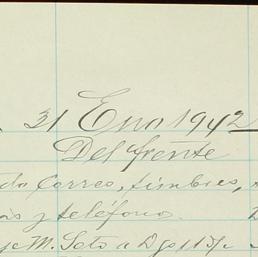 31 Eno 1942
Del frente
do Correo, timbres,
y teléfono.
M. Soto a